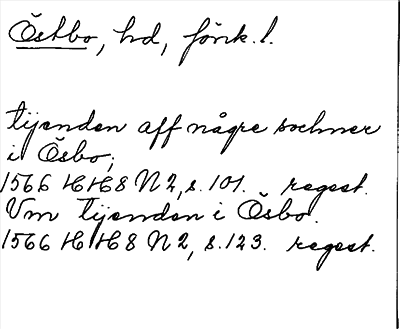 Östbo, hd, förk. l.
tijenden aff någre sochner
i Ösbo;
1566 HH8 N 2, s. 101. regest.
Vm tijenden i Ösbo.
1566 HH8 N 2, s. 123. regest.